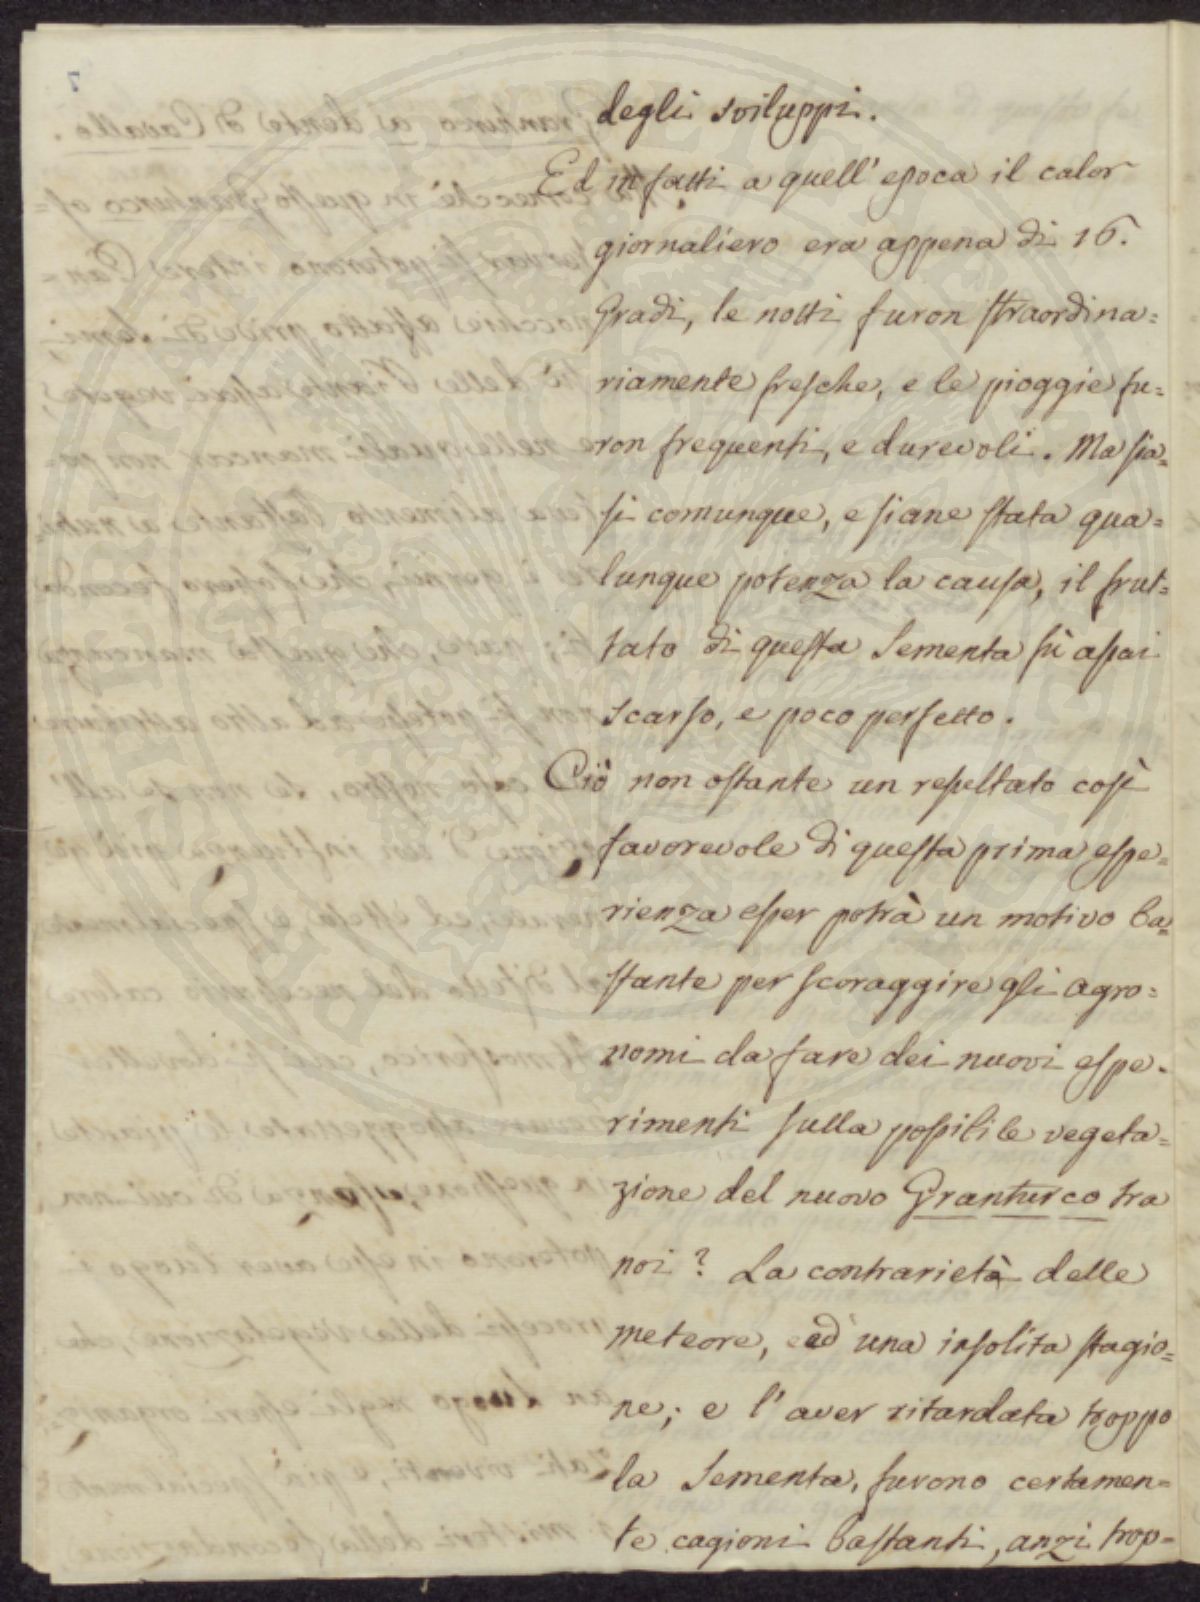 degli sviluppi.
Ed in fatti a quell' epoca il calor
giornaliero era appena di 16.
Gradi, le notti furon straordina=
riamente fresche, e le pioggie fu=
ron frequenti, e durevoli. Ma sia=
si comunque, e siane stata qua=
lunque potenza la causa, il frut=
tato di questa Sementa fù assai
scarso, e poco perfetto.
Ciò non ostante un resultato così
favorevole di questa prima espe=
rienza esser potrà un motivo ba=
stante per scoraggire gli agro=
nomi da fare dei nuovi espe=
rimenti sulla possibile vegeta=
zione del nuovo Granturco tra
noi? La contrarietà delle
meteore, ed una insolita stagio=
ne; e l' aver ritardata troppo
la Sementa, furono certamen=
te cagioni bastanti, anzi trop=